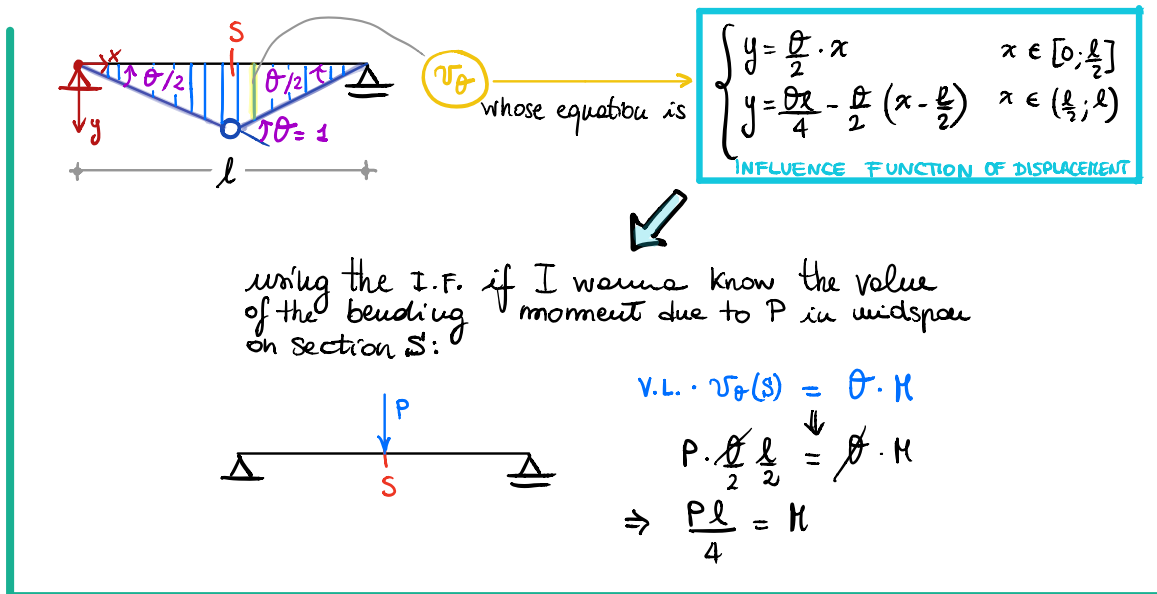 S
x
θ/2 θ/2
y
θ = 1
l
v_θ
whose equation is
y = θ/2 · x x ∈ [0; l/2]
y = θl/4 - θ/2 (x - l/2) x ∈ (l/2; l)
INFLUENCE FUNCTION OF DISPLACEMENT
using the I.F. if I wanna know the value
of the bending moment due to P in midspan
on section S:
V.L. · v_θ(S) = θ · M
P
P · θ/2 l/2 = θ · M
S
⇒ Pl/4 = M